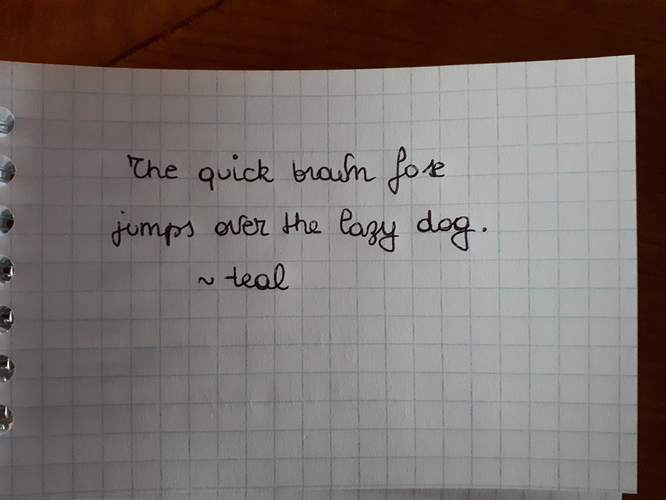 The quick brown fox
jumps over the lazy dog.
~ teal